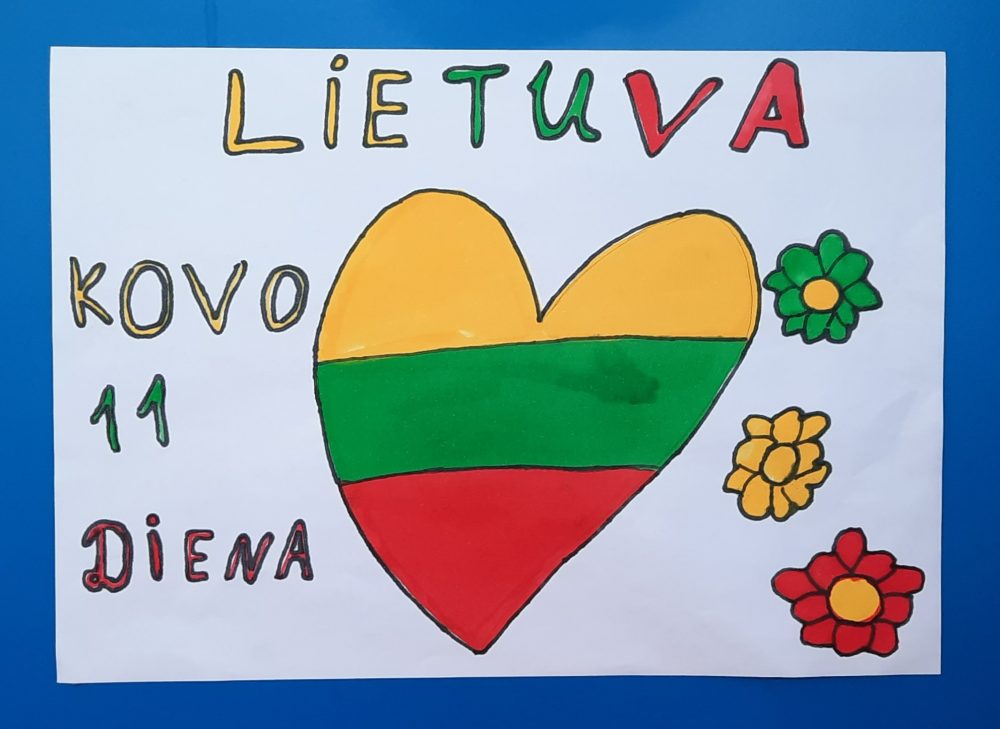 LiETUVA
KOVO
11
DiENA